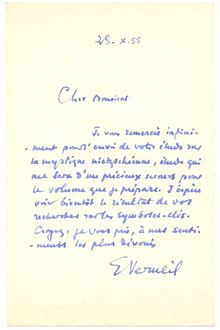 28-X-55
Cher Monsieur
Je vous remercie infini-
-ment pour l'envoi de votre étude sur
la mystique nietzschéenne, étude qui
me sera d'un précieux secours pour
le volume que je prépare. J'espère
voir bientôt le résultat de vos
recherches sur les symboles-clés.
Croyez, je vous prie, à mes senti-
-ments les plus dévoués
E Vermeil